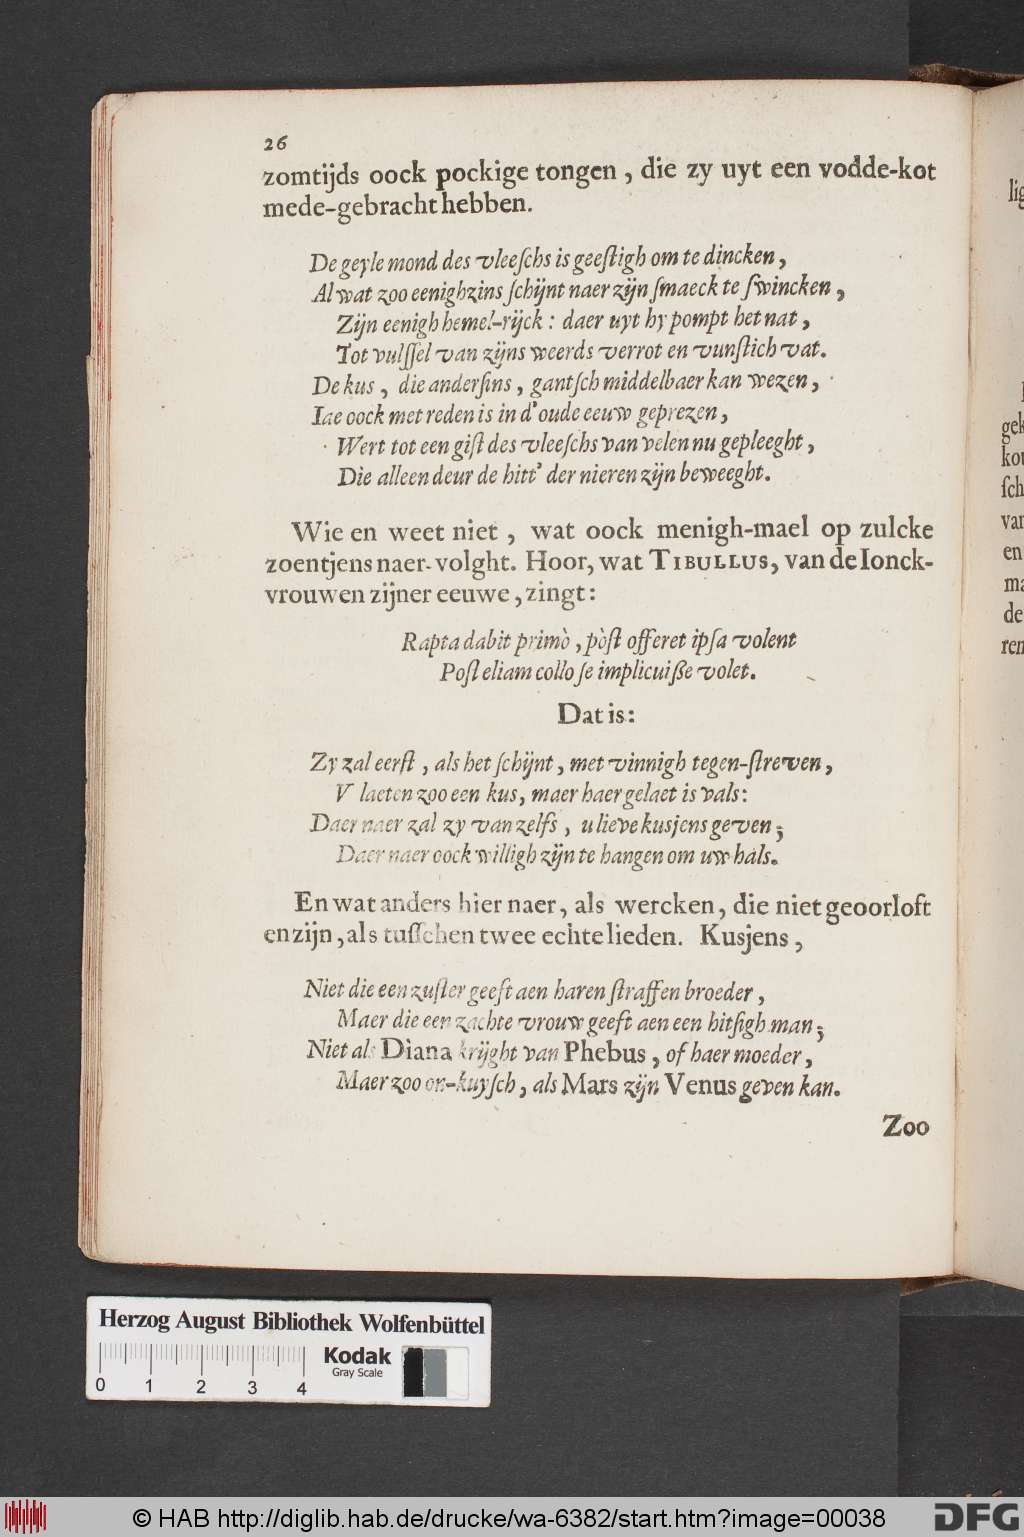 26
zomtijds oock pockige tongen, die zy uyt een vodde-kot
mede-gebracht hebben.
De geyle mond des vleeſchs is geeſtigh om te dincken,
Al wat zoo eenighzins ſchijnt naer zijn ſmaeck te ſwincken,
Zijn eenigh hemel-rijck: daer uyt hy pompt het nat,
Tot vulſſel van zijns weerds verrot en vunſtich vat.
De kus, die anderſins, gantſch middelbaer kan wezen,
Iae oock met reden is in d'oude eeuw geprezen,
Wert tot een giſt des vleeſchs van velen nu gepleeght,
Die alleen deur de hitt' der nieren zijn beweeght.
Wie en weet niet, wat oock menigh-mael op zulcke
zoentjens naer-volght. Hoor, wat TIBULLUS, van de Ionck-
vrouwen zijner eeuwe, zingt:
Rapta dabit primò, pòſt offeret ipſa volent
Poſt eliam collo ſe implicuiße volet.
Dat is:
Zy zal eerſt, als het ſchijnt, met vinnigh tegen-ſtreven,
V laeten zoo een kus, maer haer gelaet is vals:
Daer naer zal zy van zelfs, u lieve kusjens geven;
Daer naer oock willigh zijn te hangen om uw hals.
En wat anders hier naer, als wercken, die niet geoorloft
en zijn, als tuſſchen twee echte lieden. Kusjens,
Niet die een zuſter geeft aen haren ſtraffen broeder,
Maer die een zachte vrouw geeft aen een hitſigh man;
Niet als Diana krijght van Phebus, of haer moeder,
Maer zoo on-kuyſch, als Mars zijn Venus geven kan.
Zoo
lig
gek
kou
ſch
van
en
ma
de
ren
Herzog August Bibliothek Wolfenbüttel
Kodak
Gray Scale
0 1 2 3 4
© HAB http://diglib.hab.de/drucke/wa-6382/start.htm?image=00038
DFG